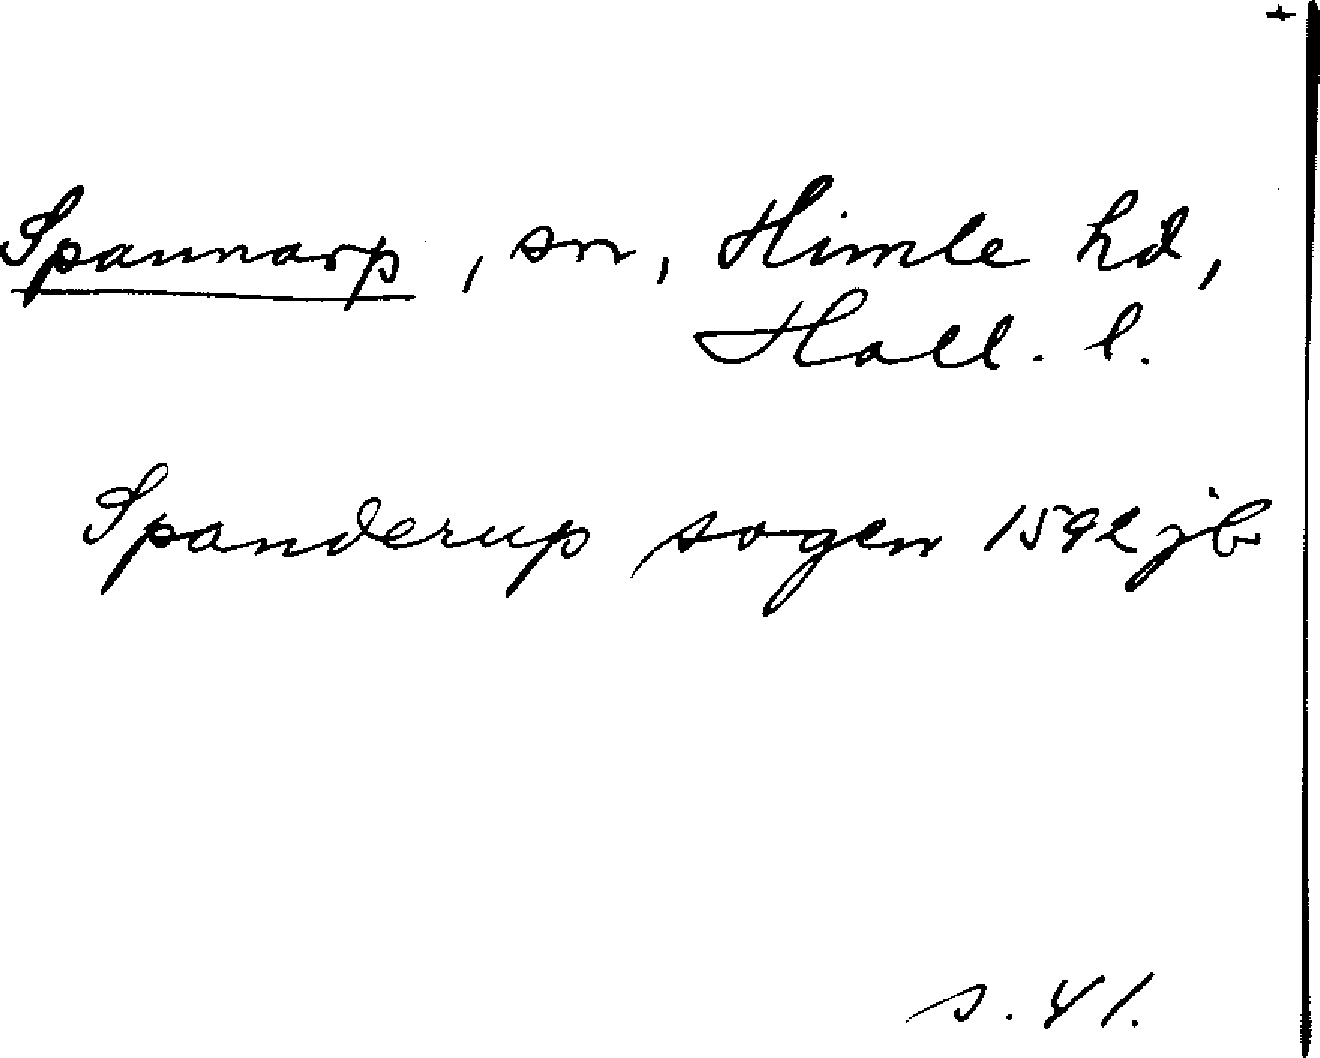 Spannarp, sn, Himle hd,
Hall. l.
Spanderup sogen 1592 jb
s. 41.